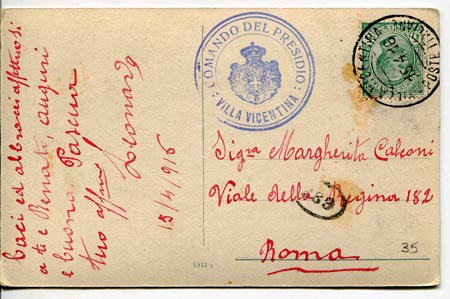 Baci ed abbracci affettuosi
a te e Renato, auguri
e buona Pasqua
tuo aff.
Leonardo
13/4/916
COMANDO DEL PRESIDIO
VILLA VICENTINA
POSTE ITALIANE
Sigra Margherita Calconi
Viale della Regina 182
Roma
35